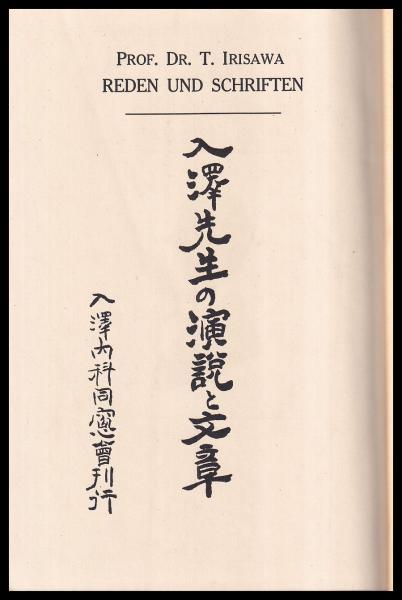 PROF. DR. T. IRISAWA
REDEN UND SCHRIFTEN
入澤先生の演説と文章
入澤内科同窓會刊行